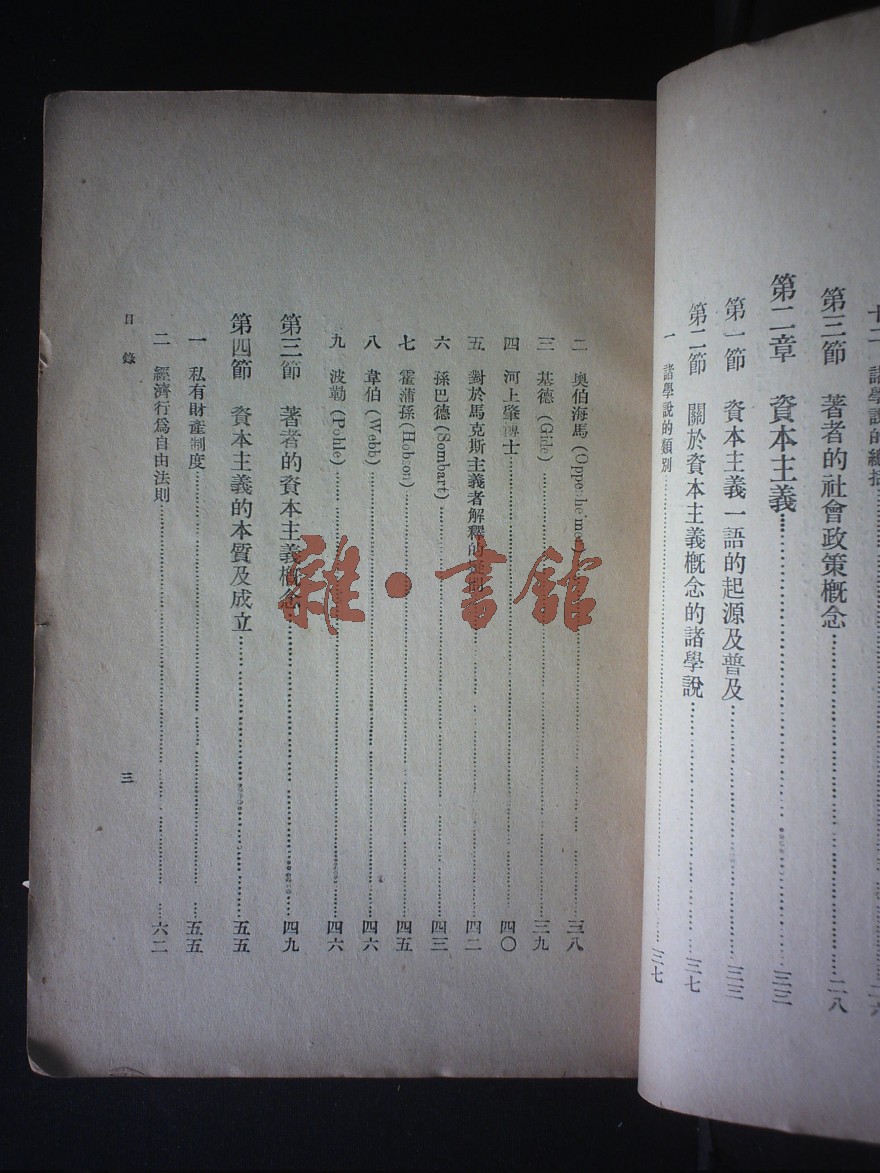 十二 諸學說的總括……二六
第三節 著者的社會政策概念……二八
第二章 資本主義……三三
第一節 資本主義一語的起源及普及……三三
第二節 關於資本主義概念的諸學說……三七
一 諸學說的類別……三七
二 奧伯海馬(Oppenheimer)……三八
三 基德(Gide)……三九
四 河上肇博士……四〇
五 對於馬克斯主義者解釋的疑問……四二
六 孫巴德(Sombart)……四三
七 霍蒲孫(Hobson)……四五
八 韋伯(Webb)……四六
九 波勒(Pohle)……四六
第三節 著者的資本主義概念……四九
第四節 資本主義的本質及成立……五五
一 私有財產制度……五五
二 經濟行爲自由法則……六二
目錄
三
雜·書館